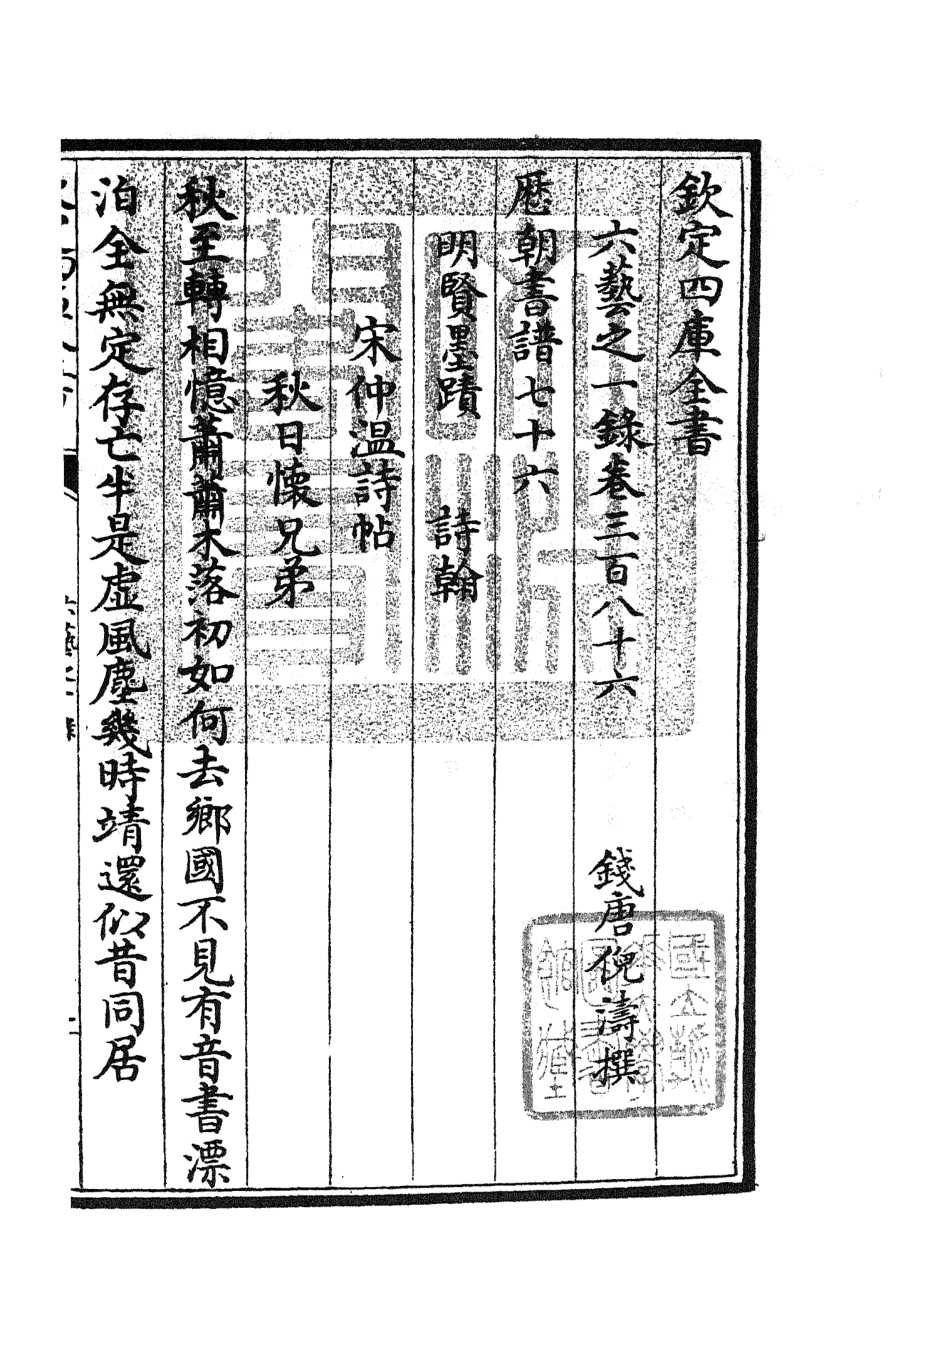 欽定四庫全書
六藝之一錄卷三百八十六
錢唐倪濤撰
歷朝書譜七十六
明賢墨蹟　詩翰
宋仲温詩帖
秋日懷兄弟
秋至轉相憶蕭蕭木落初如何去鄉國不見有音書漂
泊全無定存亡半是虛風塵幾時靖還似昔同居